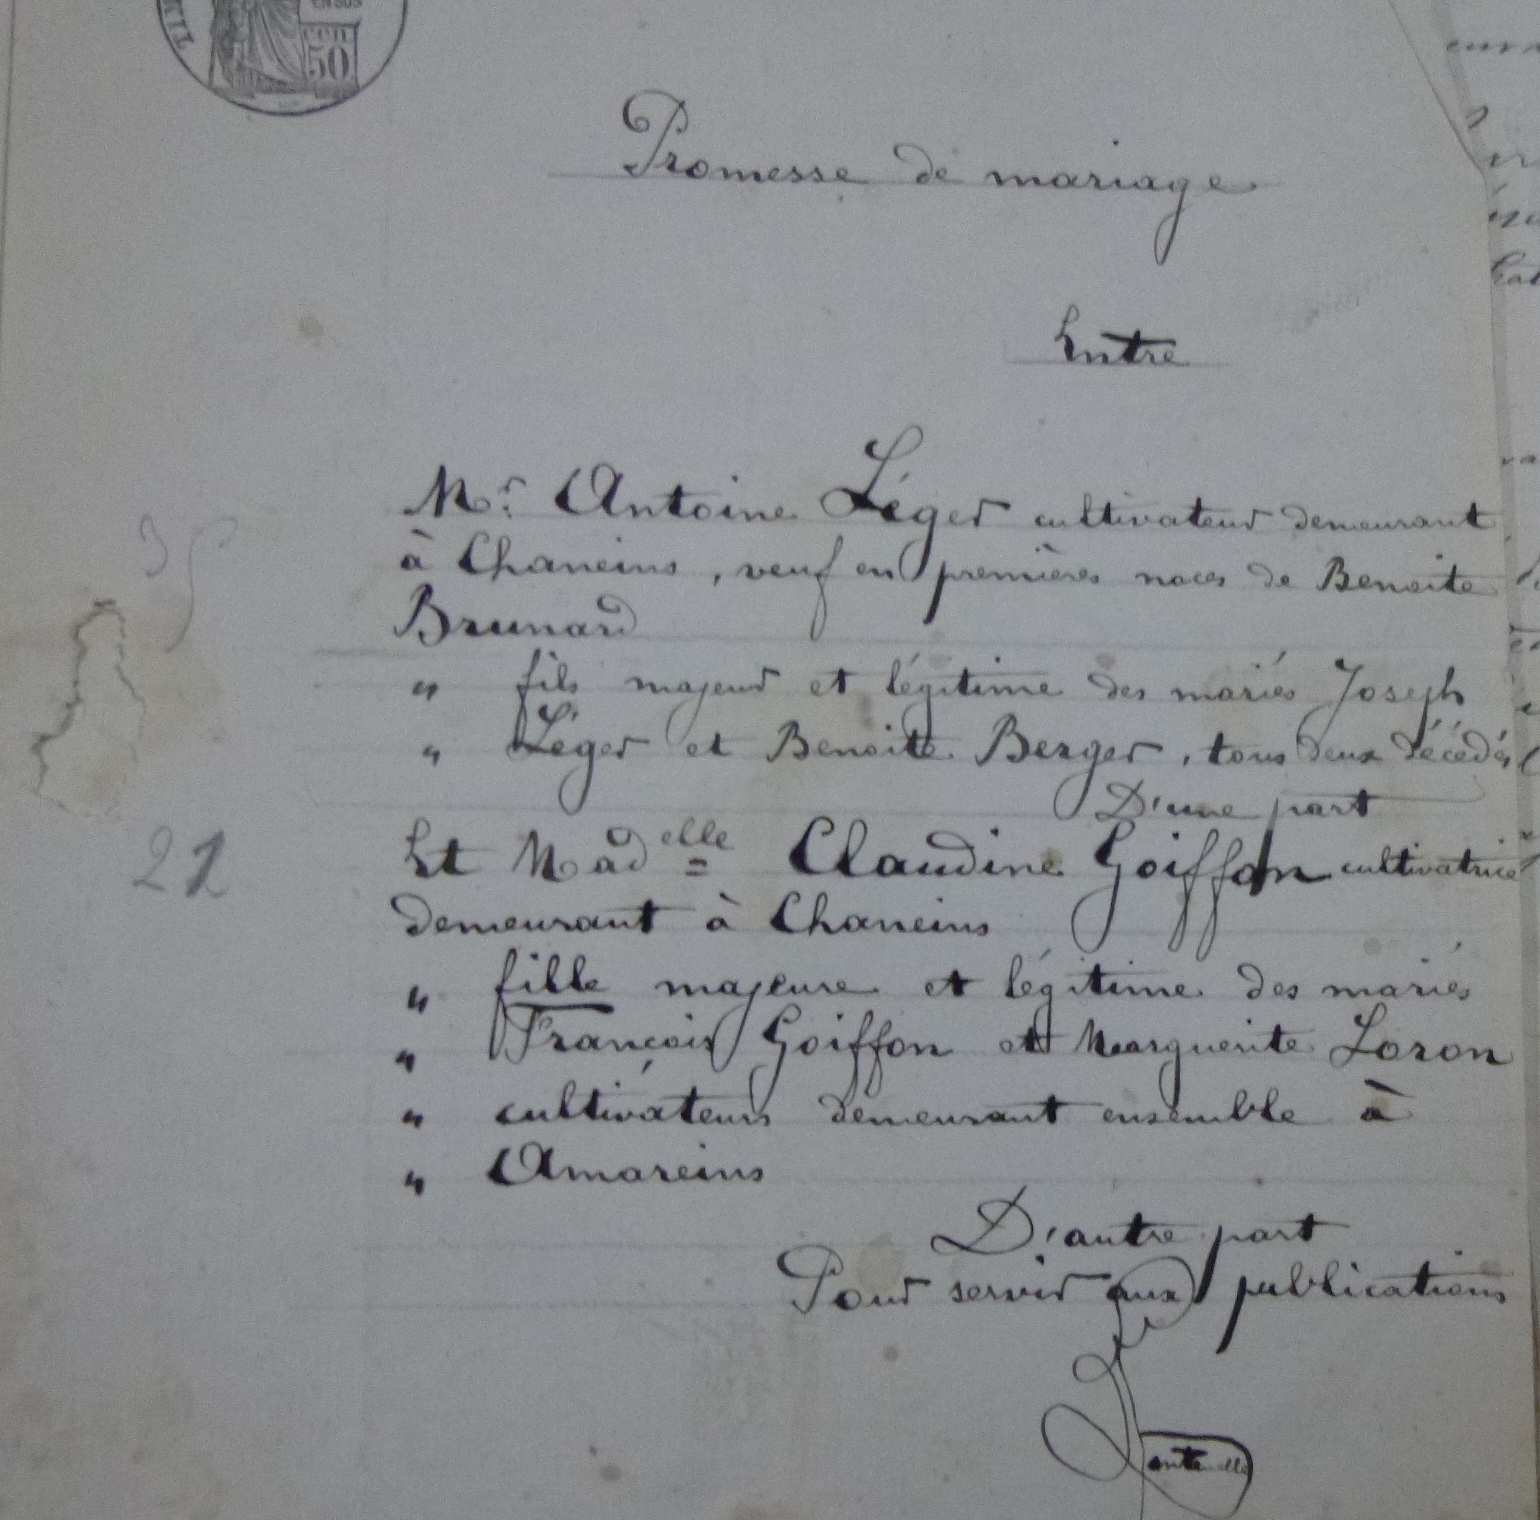 EN SUS
50
Promesse de mariage
Entre
Mr. Antoine Léger cultivateur demeurant
à Chaneins, veuf en premières noces de Benoite
Brunard
" fils majeur et légitime des mariés Joseph
" Léger et Benoite Berger, tous deux décédés
D'une part
Et Madelle Claudine Goiffon cultivatrice
demeurant à Chaneins
" fille majeure et légitime des mariés
" François Goiffon et Marguerite Loron
" cultivateurs demeurant ensemble à
" Amareins
D'autre part
Pour servir aux publications
21